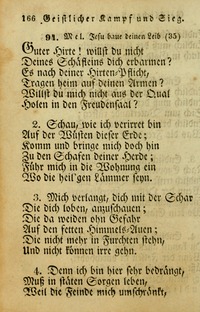 166 Geistlicher Kampf und Sieg.
94. Mel. Jesu baue deinen Leib (35)
Guter Hirte! willst du nicht
Deines Schäfleins dich erbarmen?
Es nach deiner Hirten-Pflicht,
Tragen heim auf deinen Armen?
Willst du mich nicht aus der Qual
Holen in den Freudensaal?
2. Schau, wie ich verirret bin
Auf der Wüsten dieser Erde;
Komm und bringe mich doch hin
Zu den Schafen deiner Herde;
Führ mich in die Wohnung ein
Wo die heil'gen Lämmer seyn.
3. Mich verlangt, dich mit der Schar
Die dich loben, anzuschauen;
Die da weiden ohn Gefahr
Auf den fetten Himmels-Auen;
Die nicht mehr in Furchten stehn,
Und nicht können irre gehn.
4. Denn ich bin hier sehr bedrängt,
Muß in stäten Sorgen leben,
Weil die Feinde mich umschränkt,